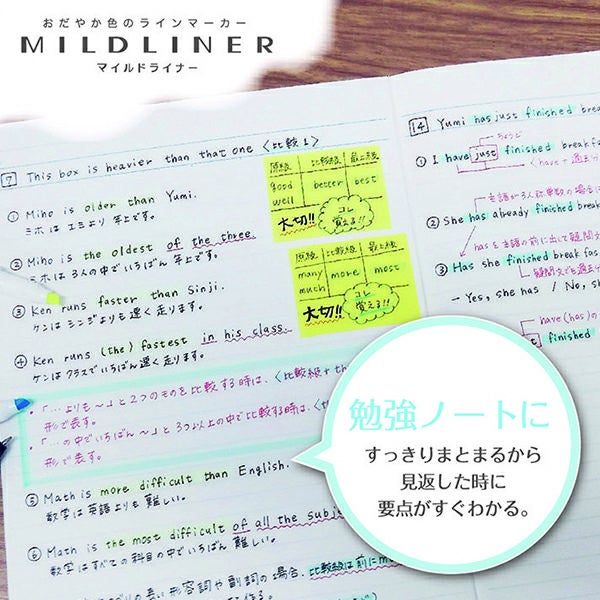 おだやか色のラインマーカー
MILDLINER
マイルドライナー
7 This box is heavier than that one 〈比較1〉
① Miho is older than Yumi.
ミホはユミより年上です。
② Miho is the oldest of the three.
ミホは3人の中でいちばん年上です。
③ Ken runs faster than Sinji.
ケンはシンジよりも速く走ります。
④ Ken runs (the) fastest in his class.
ケンはクラスでいちばん速く走ります。
・「…よりも〜」と2つのものを比較する時は、〈比較級+th
形で表す。
・「…の中でいちばん〜」と3つ以上の中で比較する時は、
形で表す。
⑤ Math is more difficult than English.
数学は英語よりも難しい。
⑥ Math is the most difficult of all the subje
数学はすべての科目の中でいちばん難しい。
長い形容詞や副詞の場合、比較級は前にm
原級 比較級 最上級
good better best
well
大切!! コレ覚える!!
原級 比較級 最上級
many more most
much
大切!! コレ覚える!!
14 Yumi has just finished brea
ちょうど
① I have just finished breakfa
〈have+過去分
主語が3人称単数の場合
② She has already finished brea
hasを主語の前に出して疑問文
③ Has she finished breakfas
疑問文でも過去
– Yes, she has / No, sh
have(has)の
finished
勉強ノートに
すっきりまとまるから
見返した時に
要点がすぐわかる。